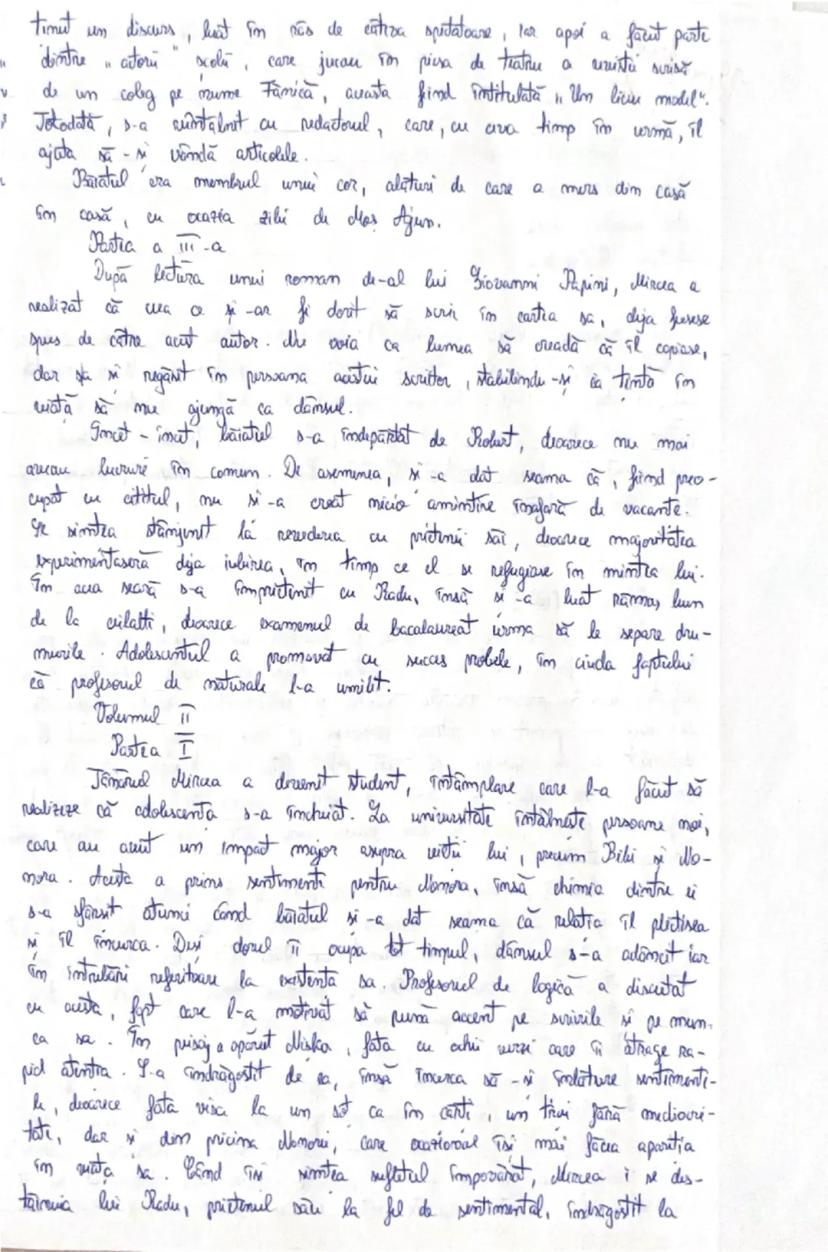 ținut un discurs, luat în râs de câțiva spectatoare, iar apoi a făcut parte
dintre „actorii" școlii, care jucau în piesa de teatru a revistei scrisă
de un coleg pe nume Fănică, aceasta fiind intitulată „Un liceu model".
Totodată, s-a reîntâlnit cu redactorul, care, cu ceva timp în urmă, îl
ajuta să-și vândă articolele.
Băiatul era membrul unui cor, alături de care a mers din casă
în casă, cu ocazia zilei de Moș Ajun.
Partea a III-a
După lectura unui roman de-al lui Giovanni Papini, Mircea a
realizat că ceea ce și-ar fi dorit să scrie în cartea sa, deja fusese
spus de către acest autor. Nu voia ca lumea să creadă că îl copiase,
dar s-a și regăsit în persoana acestui scriitor, stabilindu-și ca țintă în
viață să nu ajungă ca dânsul.
Încet-încet, băiatul s-a îndepărtat de Robert, deoarece nu mai
aveau lucruri în comun. De asemenea, și-a dat seama că, fiind preo-
cupat cu cititul, nu și-a creat nicio amintire înafară de vacanțe.
Se simțea stânjenit la revederea cu prietenii săi, deoarece majoritatea
experimentaseră deja iubirea, în timp ce el se refugiase în mintea lui.
În acea seară s-a împrietenit cu Radu, însă și-a luat rămas bun
de la ceilalți, deoarece examenul de bacalaureat urma să le separe dru-
murile. Adolescentul a promovat cu succes probele, în ciuda faptului
că profesorul de naturale l-a umilit.
Volumul II
Partea I
Tânărul Mircea a devenit student, întâmplare care l-a făcut să
realizeze că adolescența s-a încheiat. La universitate întâlnește persoane noi,
care au avut un impact major asupra vieții lui, precum Bibi și No-
nora. Acesta a prins sentimente pentru Nonora, însă chimia dintre ei
s-a sfârșit atunci când băiatul și-a dat seama că relația îl plictisea
și îl încurca. Deși dorul îi ocupa tot timpul, dânsul s-a adâncit iar
în întrebări referitoare la existența sa. Profesorul de logică a discutat
cu acesta, fapt care l-a motivat să pună accent pe scrierile și pe mun-
ca sa. În peisaj a apărut Nișka, fata cu ochi verzi care îi atrage ra-
pid atenția. S-a îndrăgostit de ea, însă încerca să-și înlăture sentimente-
le, deoarece fata visa la un soț ca în cărți, un trai fără mediocri-
tate, dar și din pricina Nonorei, care ocazional își mai făcea apariția
în viața sa. Când își simțea sufletul împovărat, Mircea i se des-
tăinuia lui Radu, prietenul său la fel de sentimental, îndrăgostit la